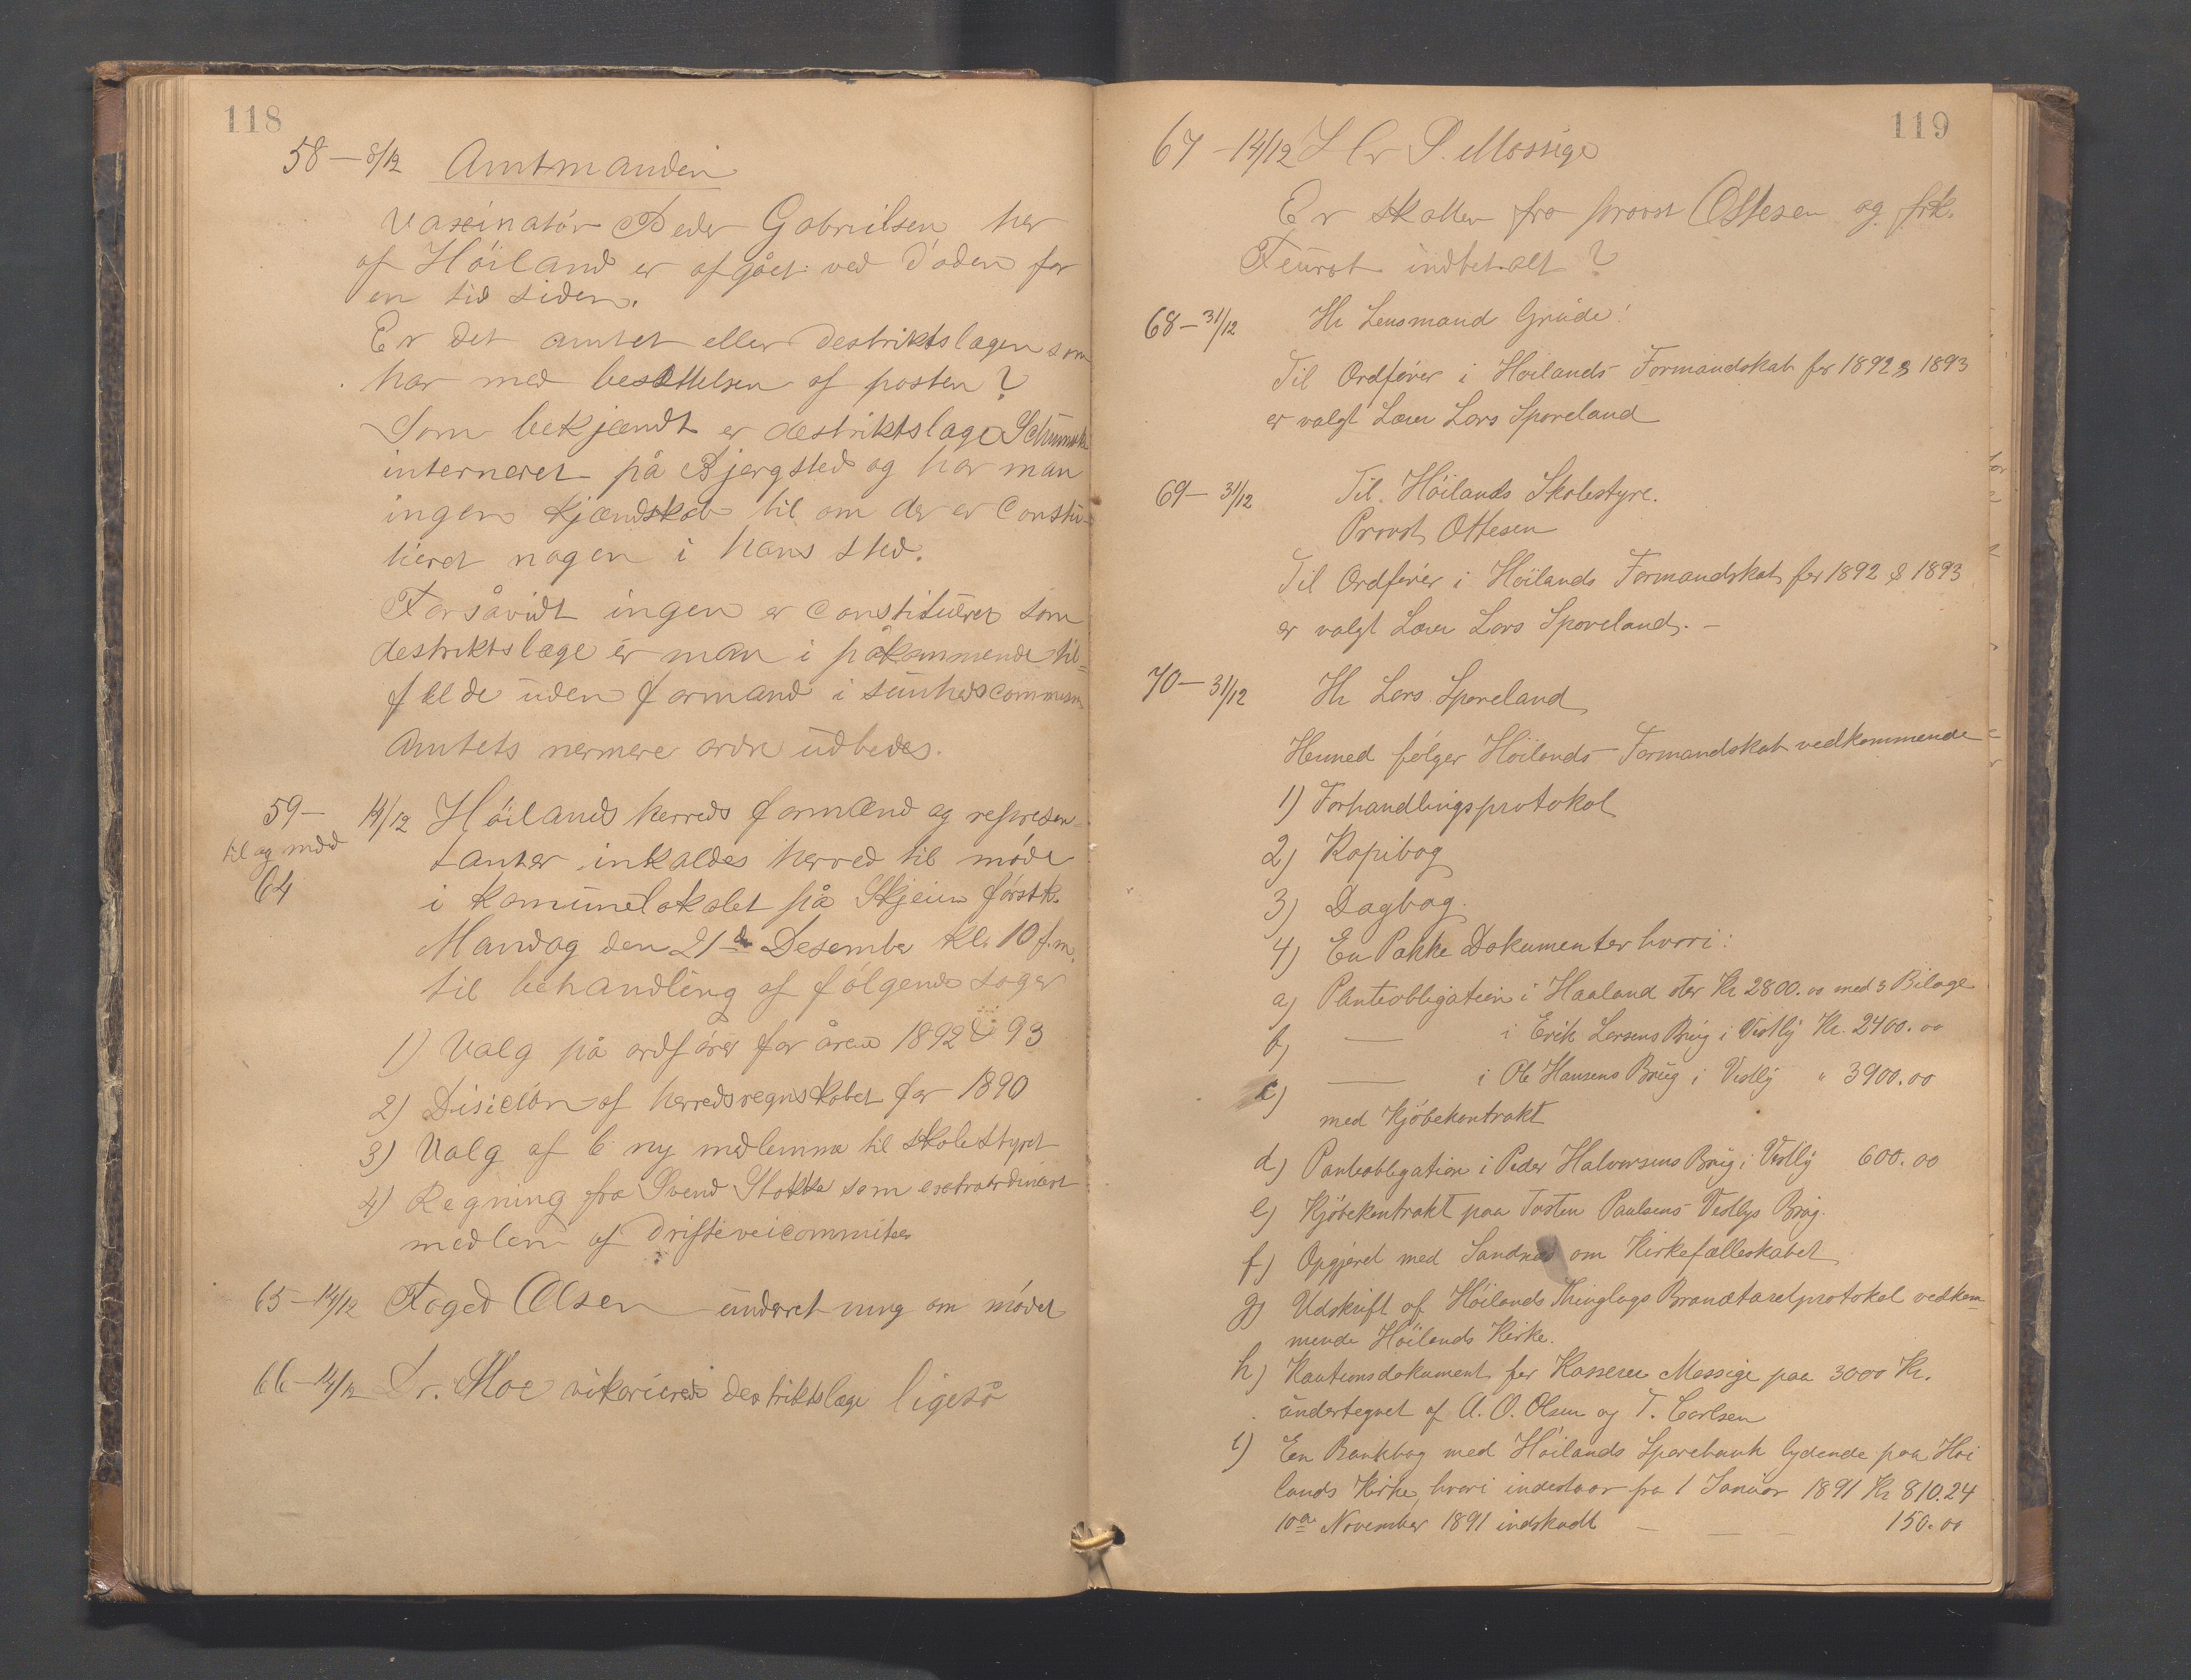 118
58 – 8/12 Amtmanden
Vaxinatör Peder Gabrielsen her
af Höiland er afgået ved döden for
en tid siden.
Er det amtet eller destriktslægen som
har med besættelsen af posten?
Som bekjendt er destriktslæge
interneret på Bjergsted og har man
ingen kjendskab til om der er Constitu-
tieret nogen i hans sted.
Forsåvidt ingen er Constitueret som
destriktslæge er man i påkommende til=
fælde uden formand i sunhedscommission
Amtets nermere ordre udbedes.
59 – 14/12 Höilands herreds formænd og represen=
til og med tanter inkaldes herved til möde
64 i Komunelokalet på Skjeien förstk.
Mandag den 21de Desember kl. 10 f.m.
til behandling af fölgende sager
1) Valg på ordförer for årene 1892 & 93
2) Disicion af herredsregnskabet for 1890
3) Valg af 6 ny medlemmer til Skolestyret
4) Regning fra Svend Stokka som extraordinært
medlem af Drifteveicommiteen
65 – 14/12 Foged Olsen underretning om mödet
66 – 14/12 Dr. Moe vikarierende destriktslæge ligeså
119
67 – 14/12 Hr P. Mossige
Er skatten fra provst Ottesen og frk.
indbetalt?
68 – 31/12 Hr Lensmand Grude!
Til Ordförer i Höilands Formandskab for 1892 & 1893
er valgt Lærer Lars Sporeland
69 – 31/12 Til Höilands Skolestyre.
Provst Ottesen
Til Ordförer i Höilands Formandskab for 1892 & 1893
er valgt Lærer Lars Sporeland. –
70 – 31/12 Hr Lars Sporeland
Hermed fölger Höilands Formandskab vedkommende
1) Forhandlingsprotokol
2) Kopibog
3) Dagbog.
4) En Pakke Dokumenter hvori:
a) Panteobligation i Haaland stor Kr 2800.00 med 3 Bilage
b) — i Erik Larsens Brug i Vestly Kr. 2400.00
c) — i Ole Hansens Brug i Vestly " 3900.00
med Kjöbekontrakt
d) Panteobligation i Peder Halvorsens Brug i Vestly 600.00
e) Kjöbekontrakt paa Tosten Paulsens Vestlys Brug.
f) Opgjörel med Sandnæs om Kirkefælleskabet
g) Udskrift af Höilands Thinglags Brandtaxtprotokol vedkom=
mende Höilands Kirke.
h) Kautionsdokument for Kasserer Mossige paa 3000 Kr.
undertegnet af A. O. Olsen og T. Carlsen
i) En Bankbog med Höilands Sparebank lydende paa Höi
lands Kirke, hvori indestaar fra 1 Januar 1891 Kr 810.24
10de November 1891 indskudt — — 150.00